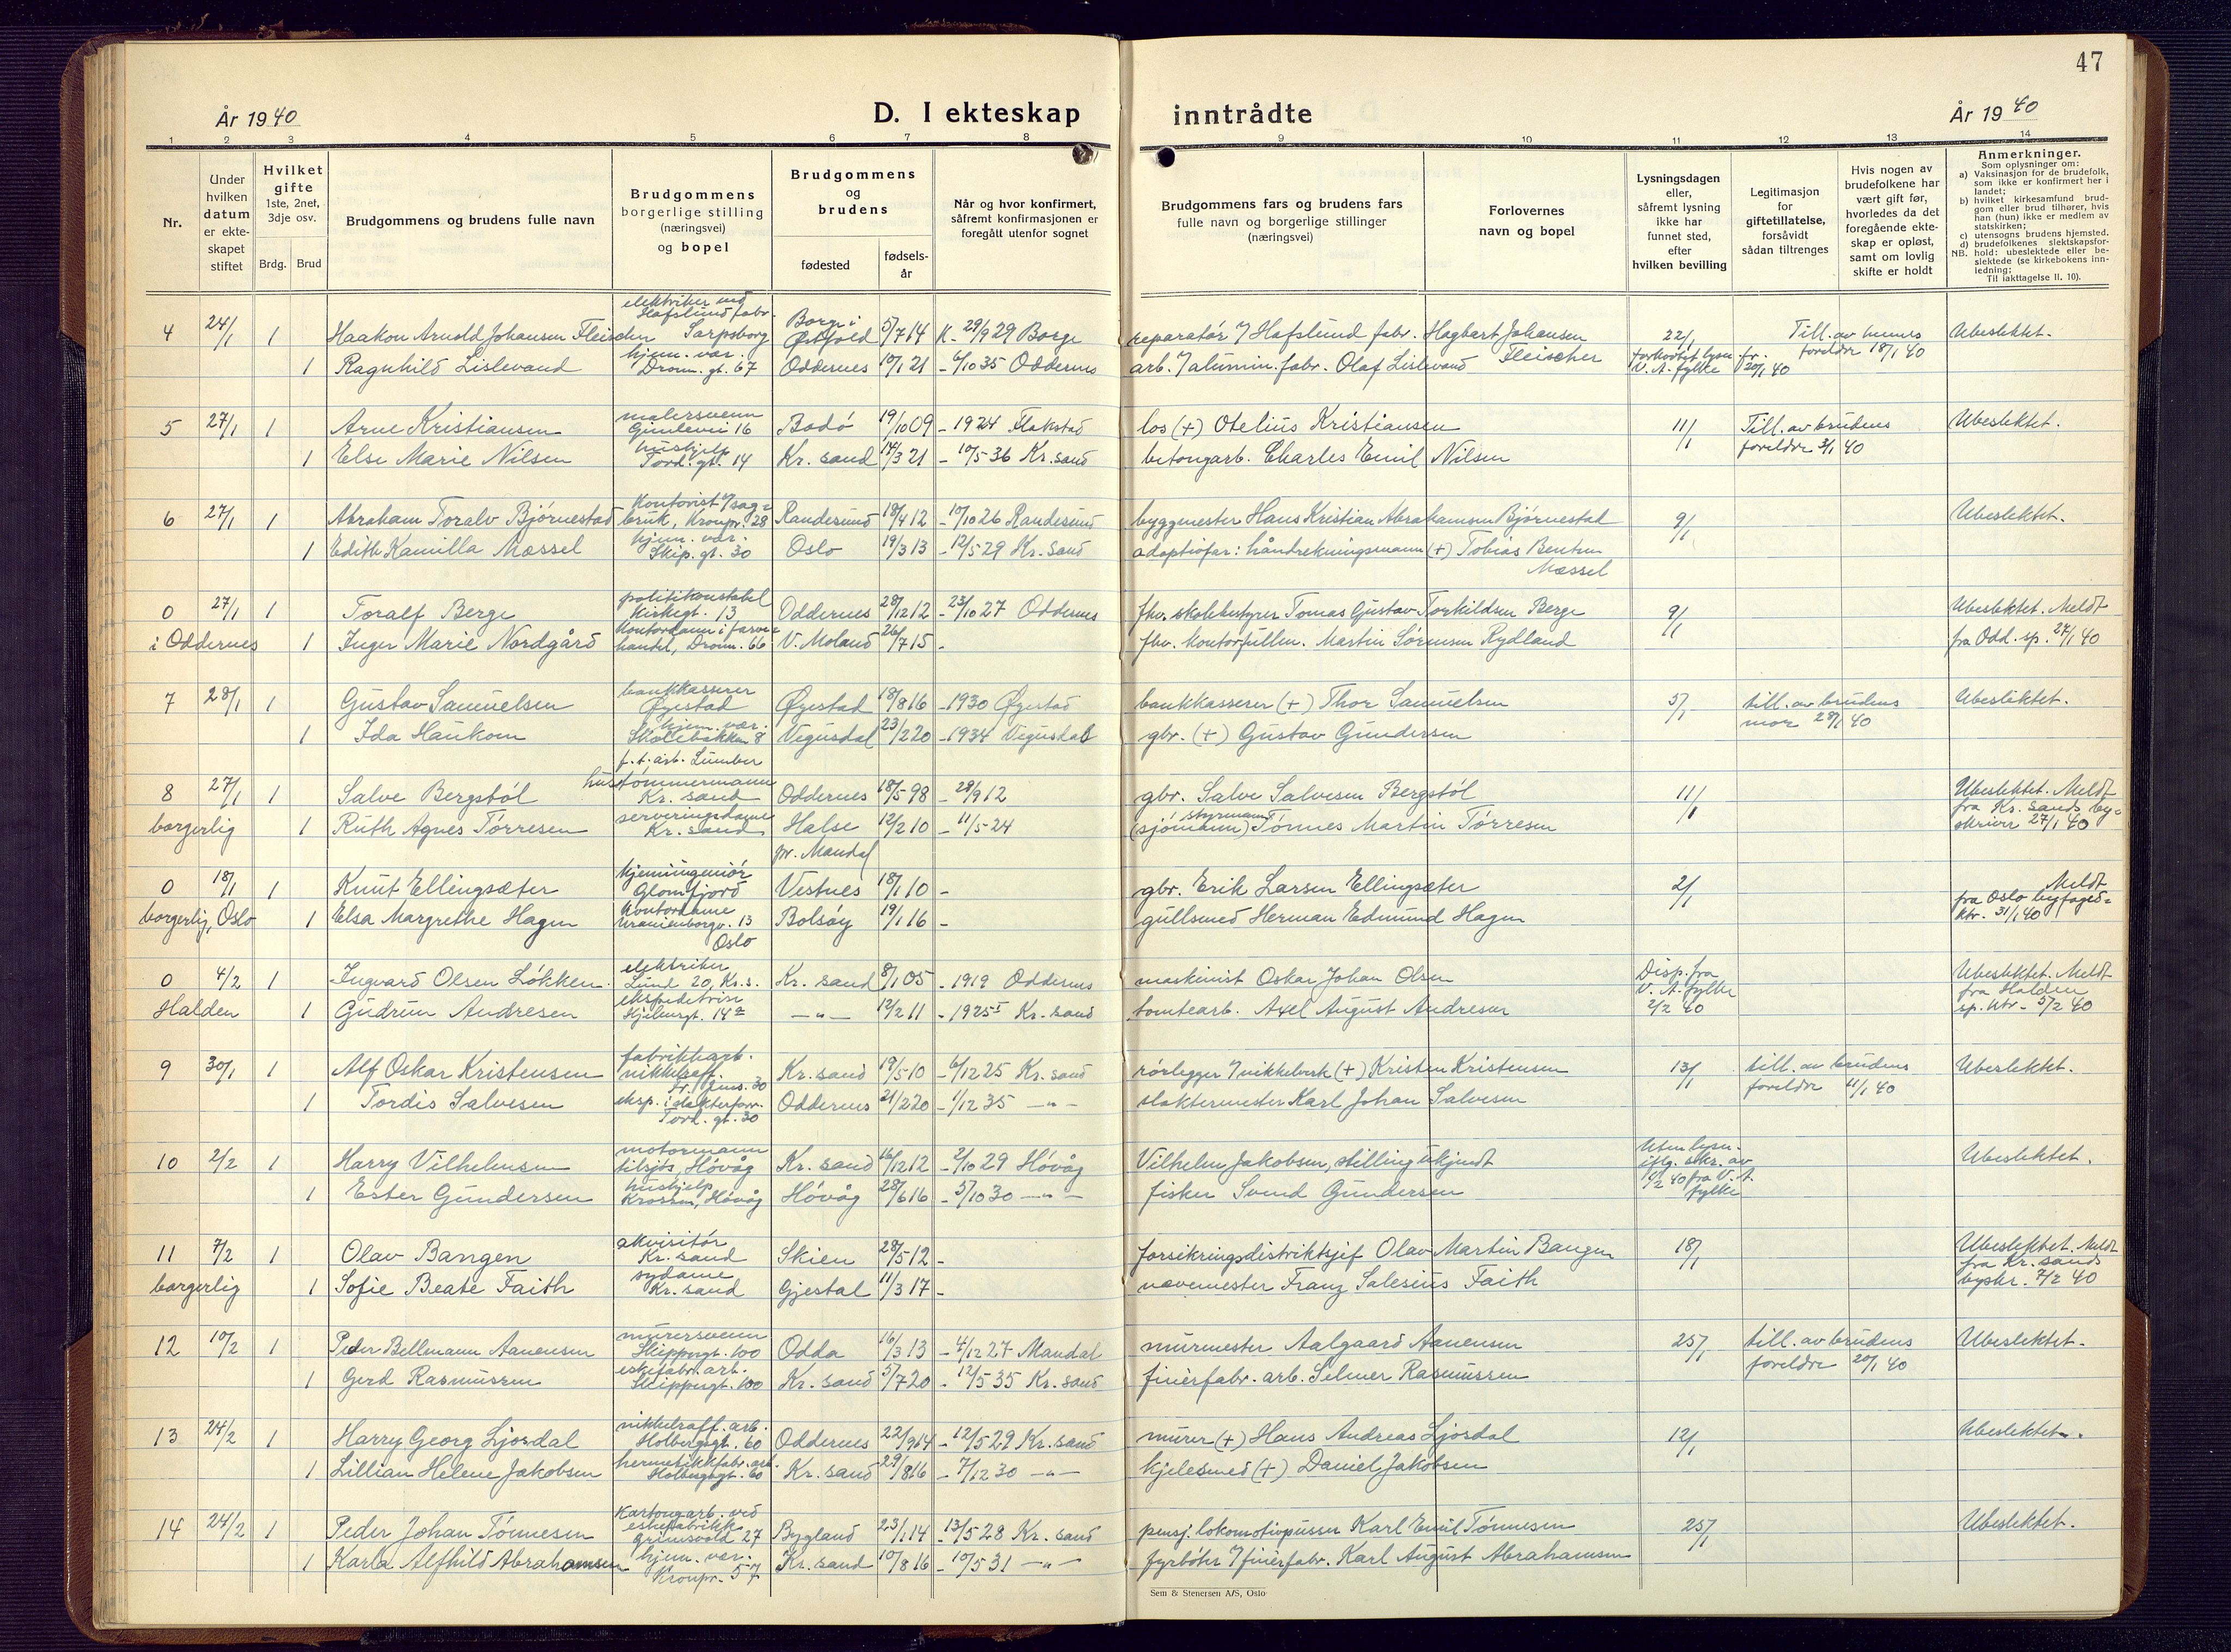 47
År 1940
D. I ekteskap inntrådte
År 1940
1 2 3 4 5 6 7 8 9 10 11 12 13 14
Nr.
Under hvilken datum er ekteskapet stiftet
Hvilket gifte 1ste, 2net, 3dje osv.
Brdg. Brud
Brudgommens og brudens fulle navn
Brudgommens borgerlige stilling (næringsvei) og bopel
Brudgommens og brudens
fødested
fødselsår
Når og hvor konfirmert, såfremt konfirmasjonen er foregått utenfor sognet
Brudgommens fars og brudens fars fulle navn og borgerlige stillinger (næringsvei)
Forlovernes navn og bopel
Lysningsdagen eller, såfremt lysning ikke har funnet sted, efter hvilken bevilling
Legitimasjon for giftetillatelse, forsåvidt sådan tiltrenges
Hvis nogen av brudefolkene har vært gift før, hvorledes da det foregående ekteskap er opløst, samt om lovlig skifte er holdt
Anmerkninger.
Som oplysninger om:
a) Vaksinasjon for de brudefolk, som ikke er konfirmert her i landet;
b) hvilket kirkesamfund brudgom eller brud tilhører, hvis han (hun) ikke er medlem av statskirken;
c) utensogns brudens hjemsted.
d) brudefolkenes slektskapsforhold: ubeslektede eller beslektede (se kirkebokens innledning;
NB.
Til iakttagelse II, 10).
4 24/1 1 Haakon Arnold Johansen Fleischer elektriker ved Hafslund fabr. Sarpsborg Borge i Østfold 5/7 14 K. 29/9 29 Borge reparatør v/ Hafslund fabr. Hagbart Johansen Fleischer 22/1 Till. av hennes foreldre 18/1 40 Ubeslektet.
1 Ragnhild Lislevand hjem. vær. Dronn. gt. 67 Oddernes 10/1 21 - 6/10 35 Oddernes arb. v/ alumin. fabr. Olaf Lislevand forkortet lysn. fr. V. A. fylke 20/1 40
5 27/1 1 Arne Kristiansen malersvenn Gimlevei 16 Bodø 19/10 09 - 1924 Flakstad los (+) Otelius Kristiansen 11/1 Till. av brudens foreldre 3/1 40 Ubeslektet.
1 Else Marie Nilsen hushjelp Tord. gt. 14 Kr. sand 14/3 21 - 10/5 36 Kr. sand betongarb. Charles Emil Nilsen
6 27/1 1 Abraham Toralv Bjørnestad Kontorist v/ sagbruk, Kronpr. 28 Randesund 18/4 12 - 10/10 26 Randesund byggmester Hans Kristian Abrahamsen Bjørnestad 9/1 Ubeslektet.
1 Edith Kamilla Mæssel hjem. vær. Skip. gt. 30 Oslo 19/3 13 - 12/5 29 Kr. sand adoptivfar: håndrekningsmann (+) Tobias Bentsen Mæssel
0 27/1 1 Toralf Berge politikonstabel Kirkegt. 13 Oddernes 28/12 12 - 23/10 27 Oddernes fhv. skolebestyrer Tomas Gustav Torkildsen Berge 9/1 Ubeslektet. Meldt
i Oddernes 1 Inger Marie Nordgård Kontordame i farvehandel, Dronn. 66 V. Moland 26/7 15 - fhv. kontorfullm. Martin Sørensen Rydland fra Odd. sp. 27/1 40
7 28/1 1 Gustav Samuelsen bankkasserer Øyestad Øyestad 18/8 16 - 1930 Øyestad bankkasserer (+) Thor Samuelsen 5/1 till. av brudens mor 28/1 40 Ubeslektet.
1 Ida Haukom hjem. vær. Skollebakken 8 Vegusdal 23/2 20 - 1934 Vegusdal gbr. (+) Gustav Gundersen
8 27/1 1 Salve Bergstøl f. t. arb. Lumber hustømmermann Kr. sand Oddernes 18/5 98 - 29/9 12 gbr. Salve Salvesen Bergstøl 11/1 Ubeslektet. Meldt fra Kr. sands byskriver 27/1 40
borgerlig 1 Ruth Agnes Tørresen serveringsdame Kr. sand Halse pr. Mandal 12/2 10 - 11/5 24 (sjømann) styrmann Tønnes Martin Tørresen
0 18/1 1 Knut Ellingsæter kjemiingeniør Glomfjord Vestnes 18/1 10 - gbr. Erik Larsen Ellingsæter 2/1 Meldt fra Oslo byfogedktr. 31/1 40
borgerlig, Oslo 1 Elsa Margrethe Hagen kontordame Uranienborgv. 13 Oslo Bolsøy 19/1 16 - gullsmed Herman Edmund Hagen
0 4/2 1 Ingvard Olsen Løkken elektriker Lund 20, Kr.s. Kr. sand 8/1 05 - 1919 Oddernes maskinist Oskar Johan Olsen Disp. fra V. A. fylke 2/2 40 Ubeslektet. Meldt fra Halden sp. ktr. 5/2 40
Halden 1 Gudrun Andresen ekspeditrise 14a - " - 12/2 11 - 1925 I Kr. sand tomtearb. Axel August Andresen
9 30/1 1 Alf Oskar Kristensen fabrikkarb. nikkelraff. Kr. sand 19/5 10 - 6/12 25 Kr. sand rørlegger v/ nikkelverk (+) Kristen Kristensen 13/1 till. av brudens foreldre 11/1 40 Ubeslektet.
1 Tordis Salvesen eksp. i slakterforr. Tord. gt. 30 Oddernes 21/2 20 - 1/12 35 - " - slaktermester Karl Johan Salvesen
10 2/2 1 Harry Vilhelmsen motormann tilsjøs, Høvåg Kr. sand 16/12 12 - 2/10 29 Høvåg Vilhelm Jakobsen, stilling ukjendt Uten lysn. iflg. skr. av 1/2 40 fra V. A. fylke Ubeslektet.
1 Ester Gundersen hushjelp Krossen, Høvåg Høvåg 28/6 16 - 5/10 30 - " - fisker Svend Gundersen
11 7/2 1 Olav Bangen akvisitør Kr. sand Skien 28/5 12 - forsikringsdistriktsjef Olav Martin Bangen 18/1 Ubeslektet. Meldt fra Kr. sands byskr. 7/2 40
borgerlig 1 Sofie Beate Faith sydame Kr. sand Gjestal 11/3 17 - vevemester Franz Salesius Faith
12 10/2 1 Peder Bellmann Aanensen murersvenn Skippergt. 100 Odda 16/3 13 - 4/12 27 Mandal murmester Aalgaard Aanensen 25/1 till. av brudens foreldre 20/1 40 Ubeslektet.
1 Gerd Rasmussen eskefabr. arb. Skippergt. 100 Kr. sand 5/7 20 - 12/5 35 Kr. sand finérfabr. arb. Selmer Rasmussen
13 24/2 1 Harry Georg Ljosdal nikkelraff. arb. Holbergsgt. 60 Oddernes 22/9 14 - 12/5 29 Kr. sand murer (+) Hans Andreas Ljosdal 12/1 Ubeslektet.
1 Lillian Helene Jakobsen hermetikkfabr. arb. Holbergsgt. 60 Kr. sand 29/8 16 - 7/12 30 - " - kjelesmed (+) Daniel Jakobsen
14 24/2 1 Peder Johan Tønnesen Kartongarb. ved eskefabrikk Grimsvold 27 Bygland 23/1 14 - 13/5 28 Kr. sand pensj. lokomotivpusser Karl Emil Tønnesen 25/1 Ubeslektet.
1 Karla Alfhild Abrahamsen hjem. vær. Kronpr. 57 Kr. sand 10/8 16 - 10/5 31 - " - fyrbøter v/ finérfabr. Karl August Abrahamsen
Sem & Stenersen A/S, Oslo